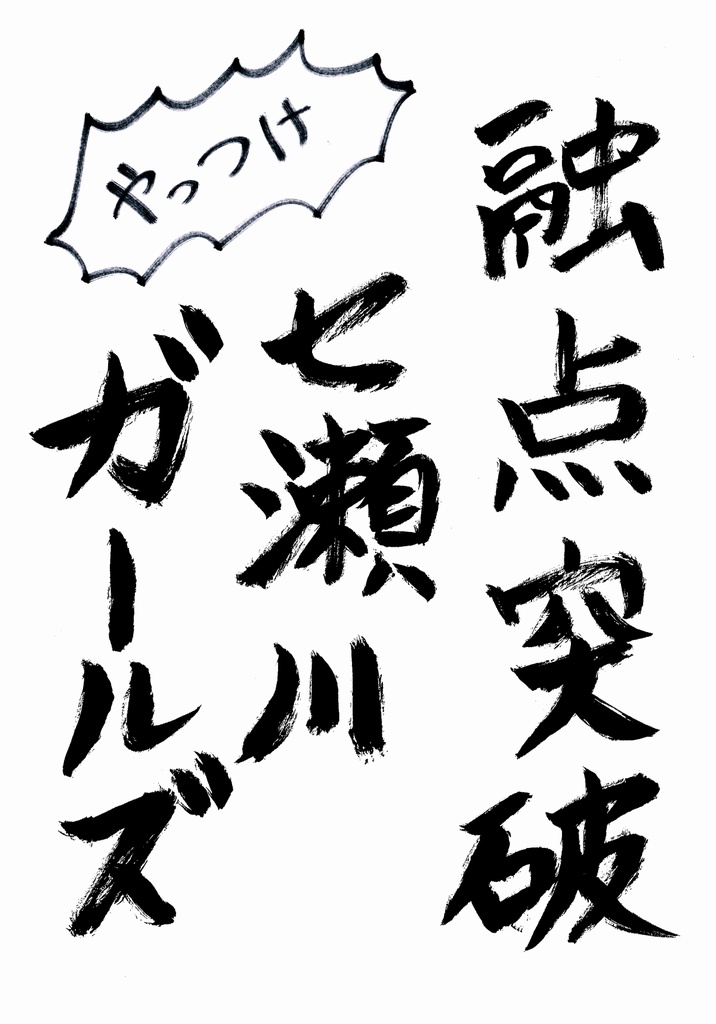 融点突破
七瀬川
ガールズ
やっつけ